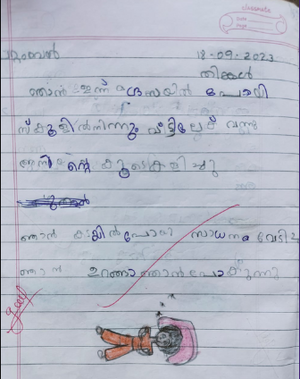 classmate
18-09-2023
തിങ്കൾ
ഞാൻ ഇന്ന് മദ്രസയിൽ പോയി
സ്കൂളിൽനിന്നും വീട്ടിലേക്ക് വന്നു
കളിച്ചു
ഞാൻ കടയിൽപോയി സാധനം വേടി
ഞാൻ ഉറങ്ങാൻ പോകുന്നു
good